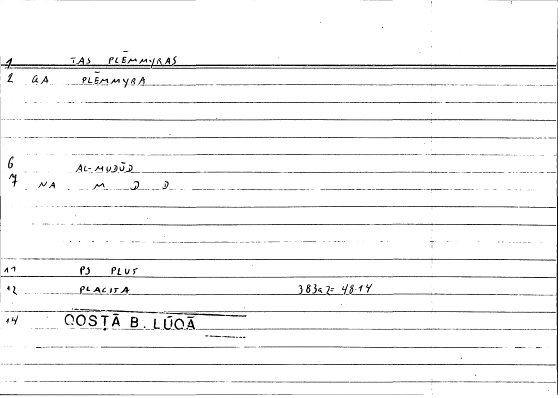 1 TAS PLĒMMYRAS
2 GA PLĒMMYRA
6 AL-MUDŪD
7 NA M D D
11 PS PLUT
12 PLACITA 383a7= 48.14
14 QOSṬĀ B. LŪQĀ